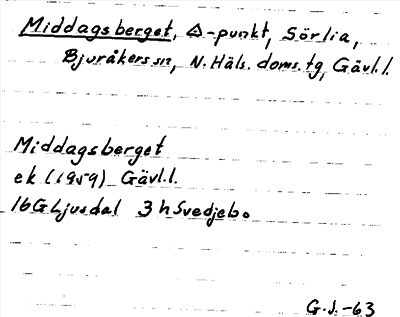 Middagsberget, △-punkt, Sörlia,
Bjuråkers sn, N. Häls. doms. tg, Gävl.l.
Middagsberget
ek (1959) Gävl.l.
16G Ljusdal 3 h Svedjebo
G.J.-63